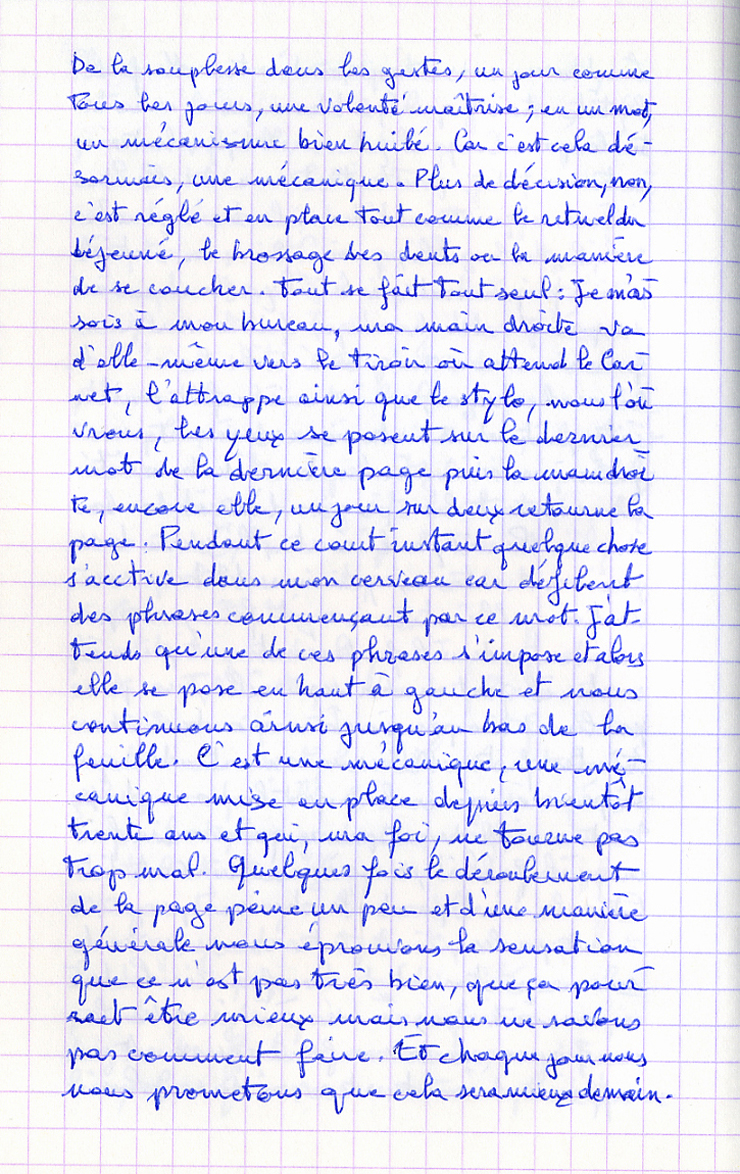 De la souplesse dans les gestes, un jour comme
tous les jours, une volonté maîtrise ; en un mot,
un mécanisme bien huilé. Car c'est cela dé-
sormais, une mécanique. Plus de décision, non,
c'est réglé et en place tout comme le rituel du
déjeuné, le brossage des dents ou la manière
de se coucher. Tout se fait tout seul : Je m'as
sois à mon bureau, ma main droite va
d'elle-même vers le tiroir où attend le Car
net, l'attrappe ainsi que le stylo, nous l'ou
vrons, les yeux se posent sur le dernier
mot de la dernière page puis la main droi
te, encore elle, un jour sur deux retourne la
page. Pendant ce court instant quelque chose
s'acctive dans mon cerveau car défilent
des phrases commençant par ce mot. J'at-
tends qu'une de ces phrases s'impose et alors
elle se pose en haut à gauche et nous
continuons ainsi jusqu'au bas de la
feuille. C'est une mécanique, une mé-
canique mise en place depuis bientôt
trente ans et qui, ma foi, ne tourne pas
trop mal. Quelques fois le déroulement
de la page peine un peu et d'une manière
générale nous éprouvons la sensation
que ce n'est pas très bien, que ça pour
rait être mieux mais nous ne savons
pas comment faire. Et chaque jour nous
nous prometons que cela sera mieux demain.